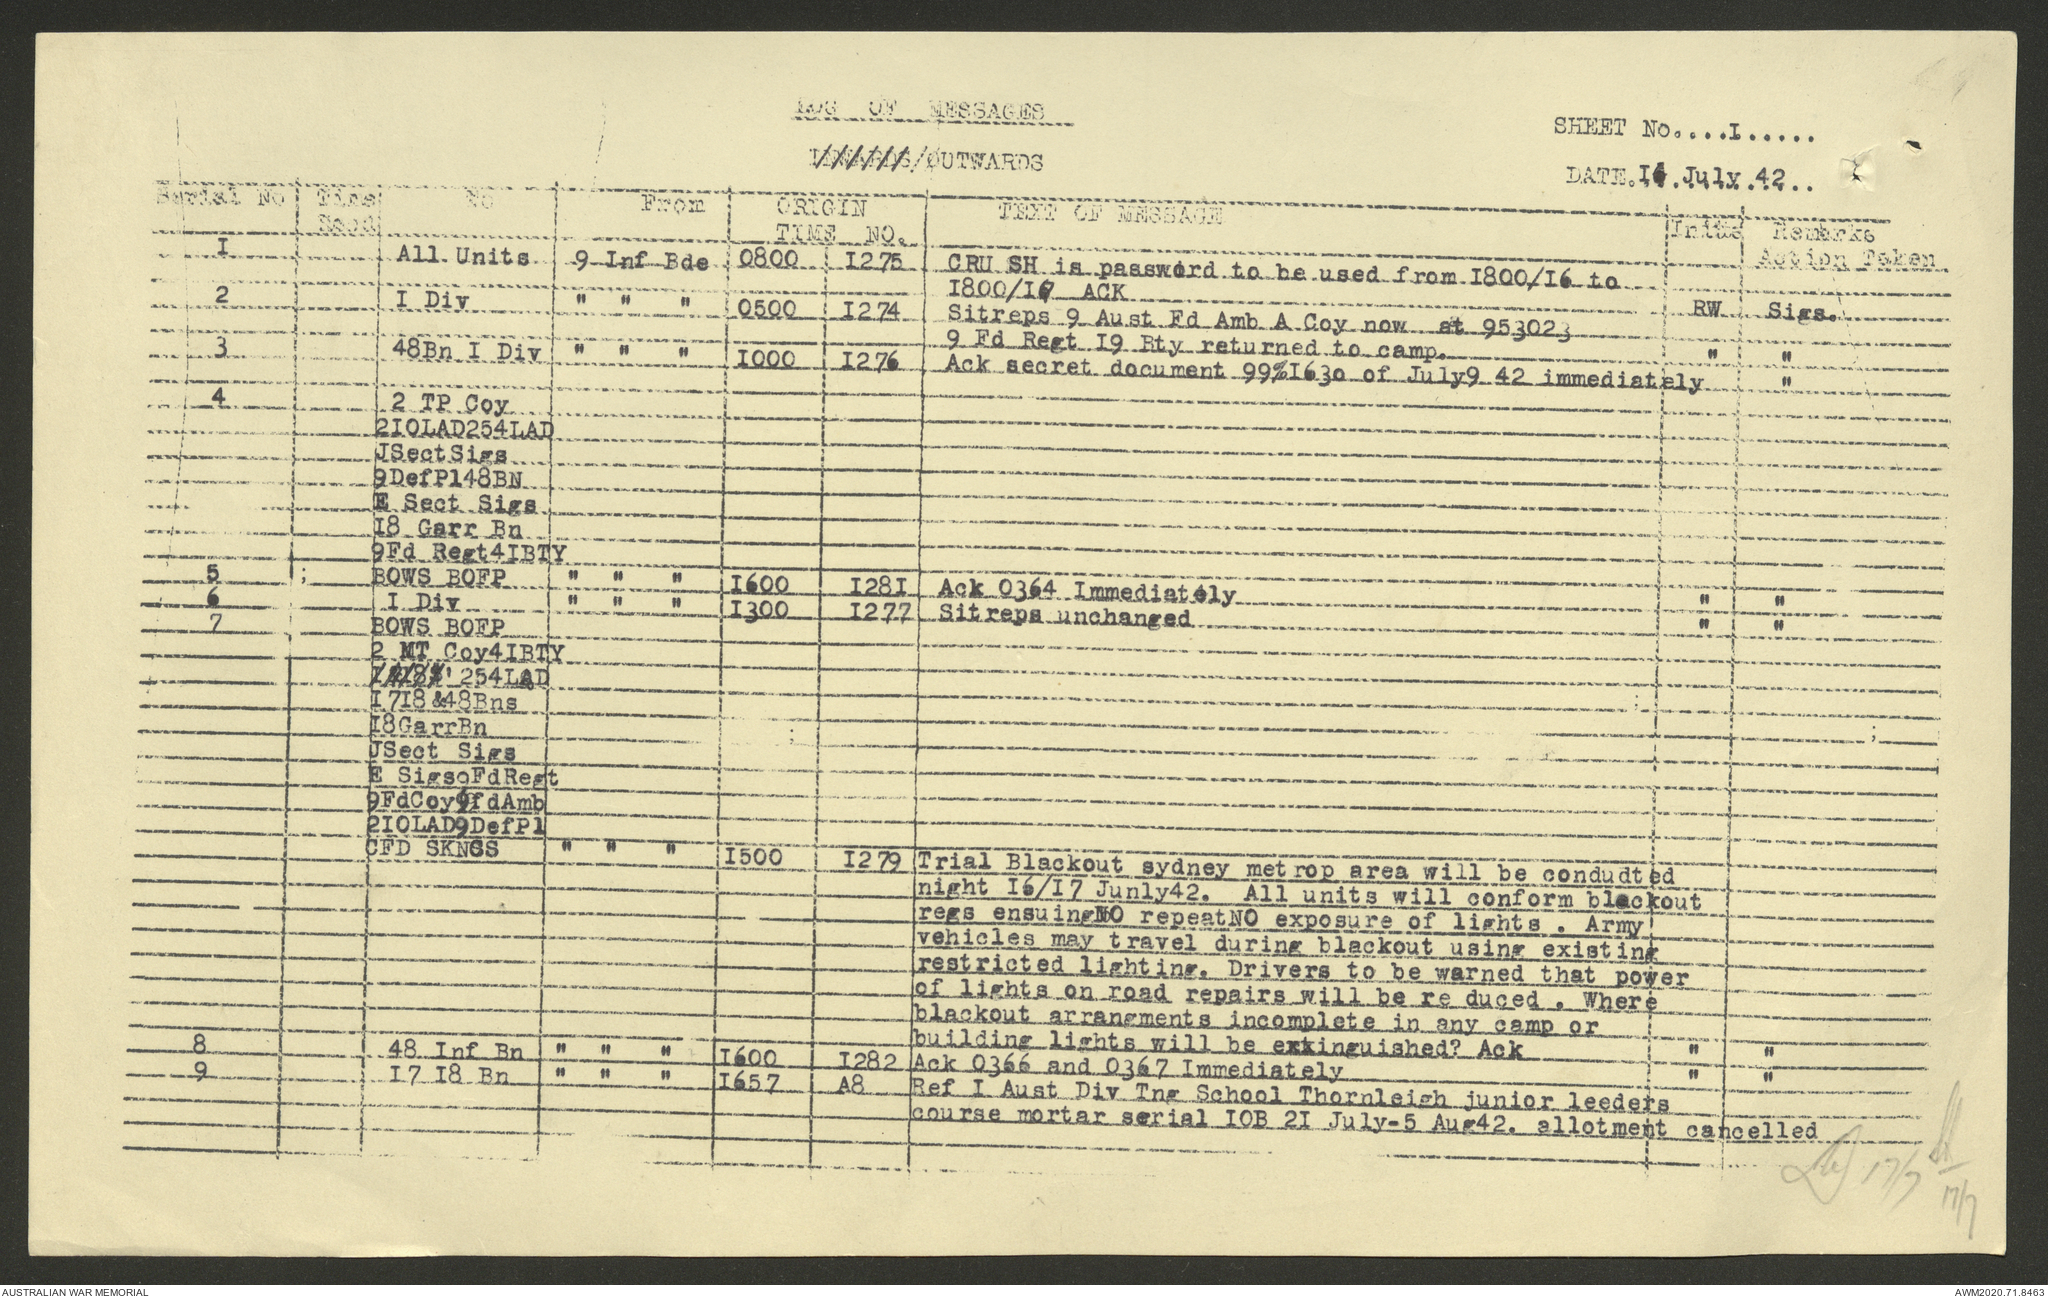 LOG OF MESSAGES
INWARDS/OUTWARDS
SHEET No....I.....
DATE.I6.July.42..
Serial No Time Recd To From ORIGIN TIME NO. TEXT OF MESSAGE Initls Remarks Action Taken
1 All Units 9 Inf Bde 0800 I275 CRU SH is password to be used from I800/I6 to
I800/I7 ACK
2 I Div " " " 0500 I274 Sitreps 9 Aust Fd Amb A Coy now at 953023 RW Sigs.
9 Fd Regt I9 Bty returned to camp. " "
3 48Bn I Div " " " I000 I276 Ack secret document 99%I630 of July9 42 immediately "
4 2 TP Coy
2IOLAD254LAD
JSectSigs
9DefPl48BN
E Sect Sigs
I8 Garr Bn
9Fd Regt4IBTY
5 BOWS BOFP " " " I600 I28I Ack 0364 Immediately " "
6 I Div " " " I300 I277 Sitreps unchanged " "
7 BOWS BOFP
2 MT Coy4IBTY
254LAD
I7I8&48Bns
I8GarrBn
JSect Sigs
E Sigs9FdRegt
9FdCoy9fdAmb
2IOLAD9DefPl
CFD SKNGS " " " I500 I279 Trial Blackout sydney metrop area will be condudted
night I6/I7 Junly42. All units will conform blackout
regs ensuingNO repeatNO exposure of lights . Army
vehicles may travel during blackout using existing
restricted lighting. Drivers to be warned that power
of lights on road repairs will be re duced . Where
blackout arrangments incomplete in any camp or
building lights will be extinguished? Ack " "
8 48 Inf Bn " " " I600 I282 Ack 0366 and 0367 Immediately " "
9 I7 I8 Bn " " " I657 A8 Ref I Aust Div Tng School Thornleigh junior leeders
course mortar serial IOB 2I July-5 Aug42. allotment cancelled
17/7
17/7
AUSTRALIAN WAR MEMORIAL
AWM2020.71.8463